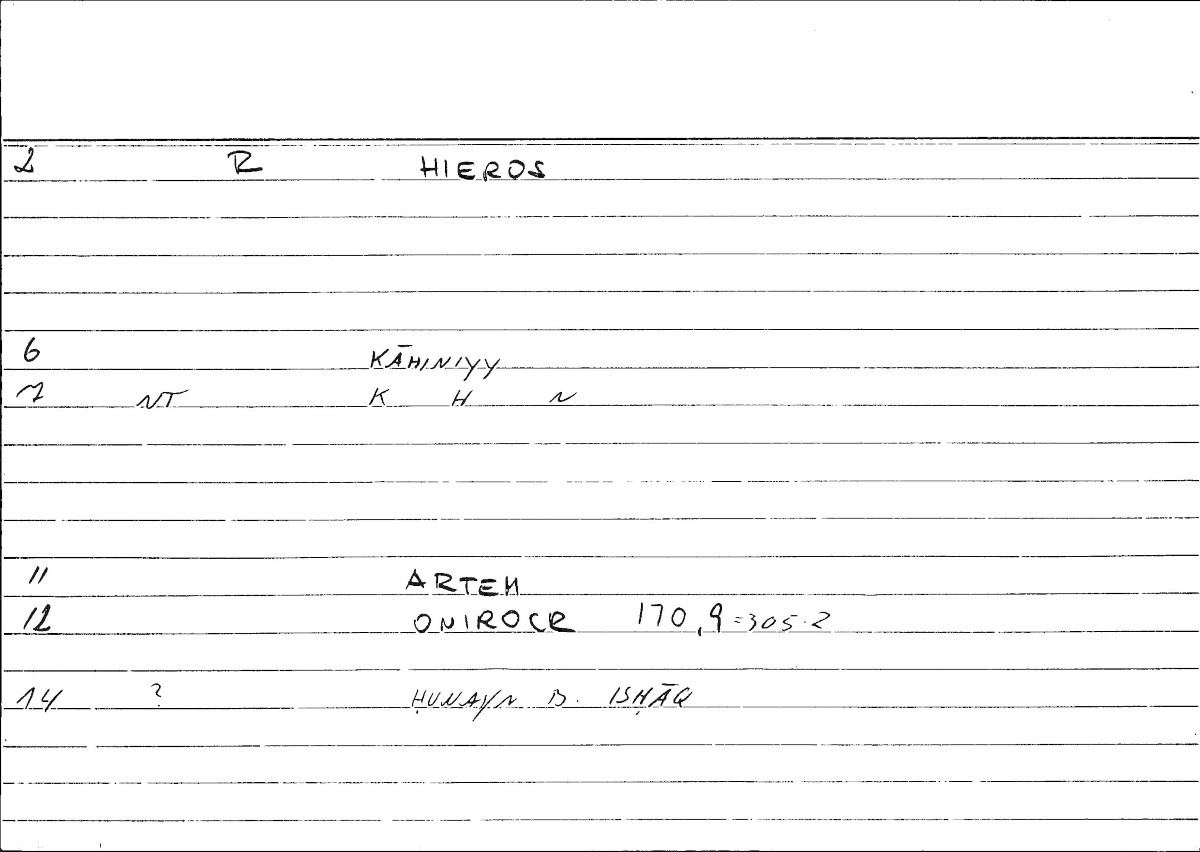 2 R HIEROS
6 KĀHINIYY
7 NT K H N
11 ARTEM
12 ONIROCR 170,9=305.2
14 ? ḤUNAYN B. ISḤĀQ